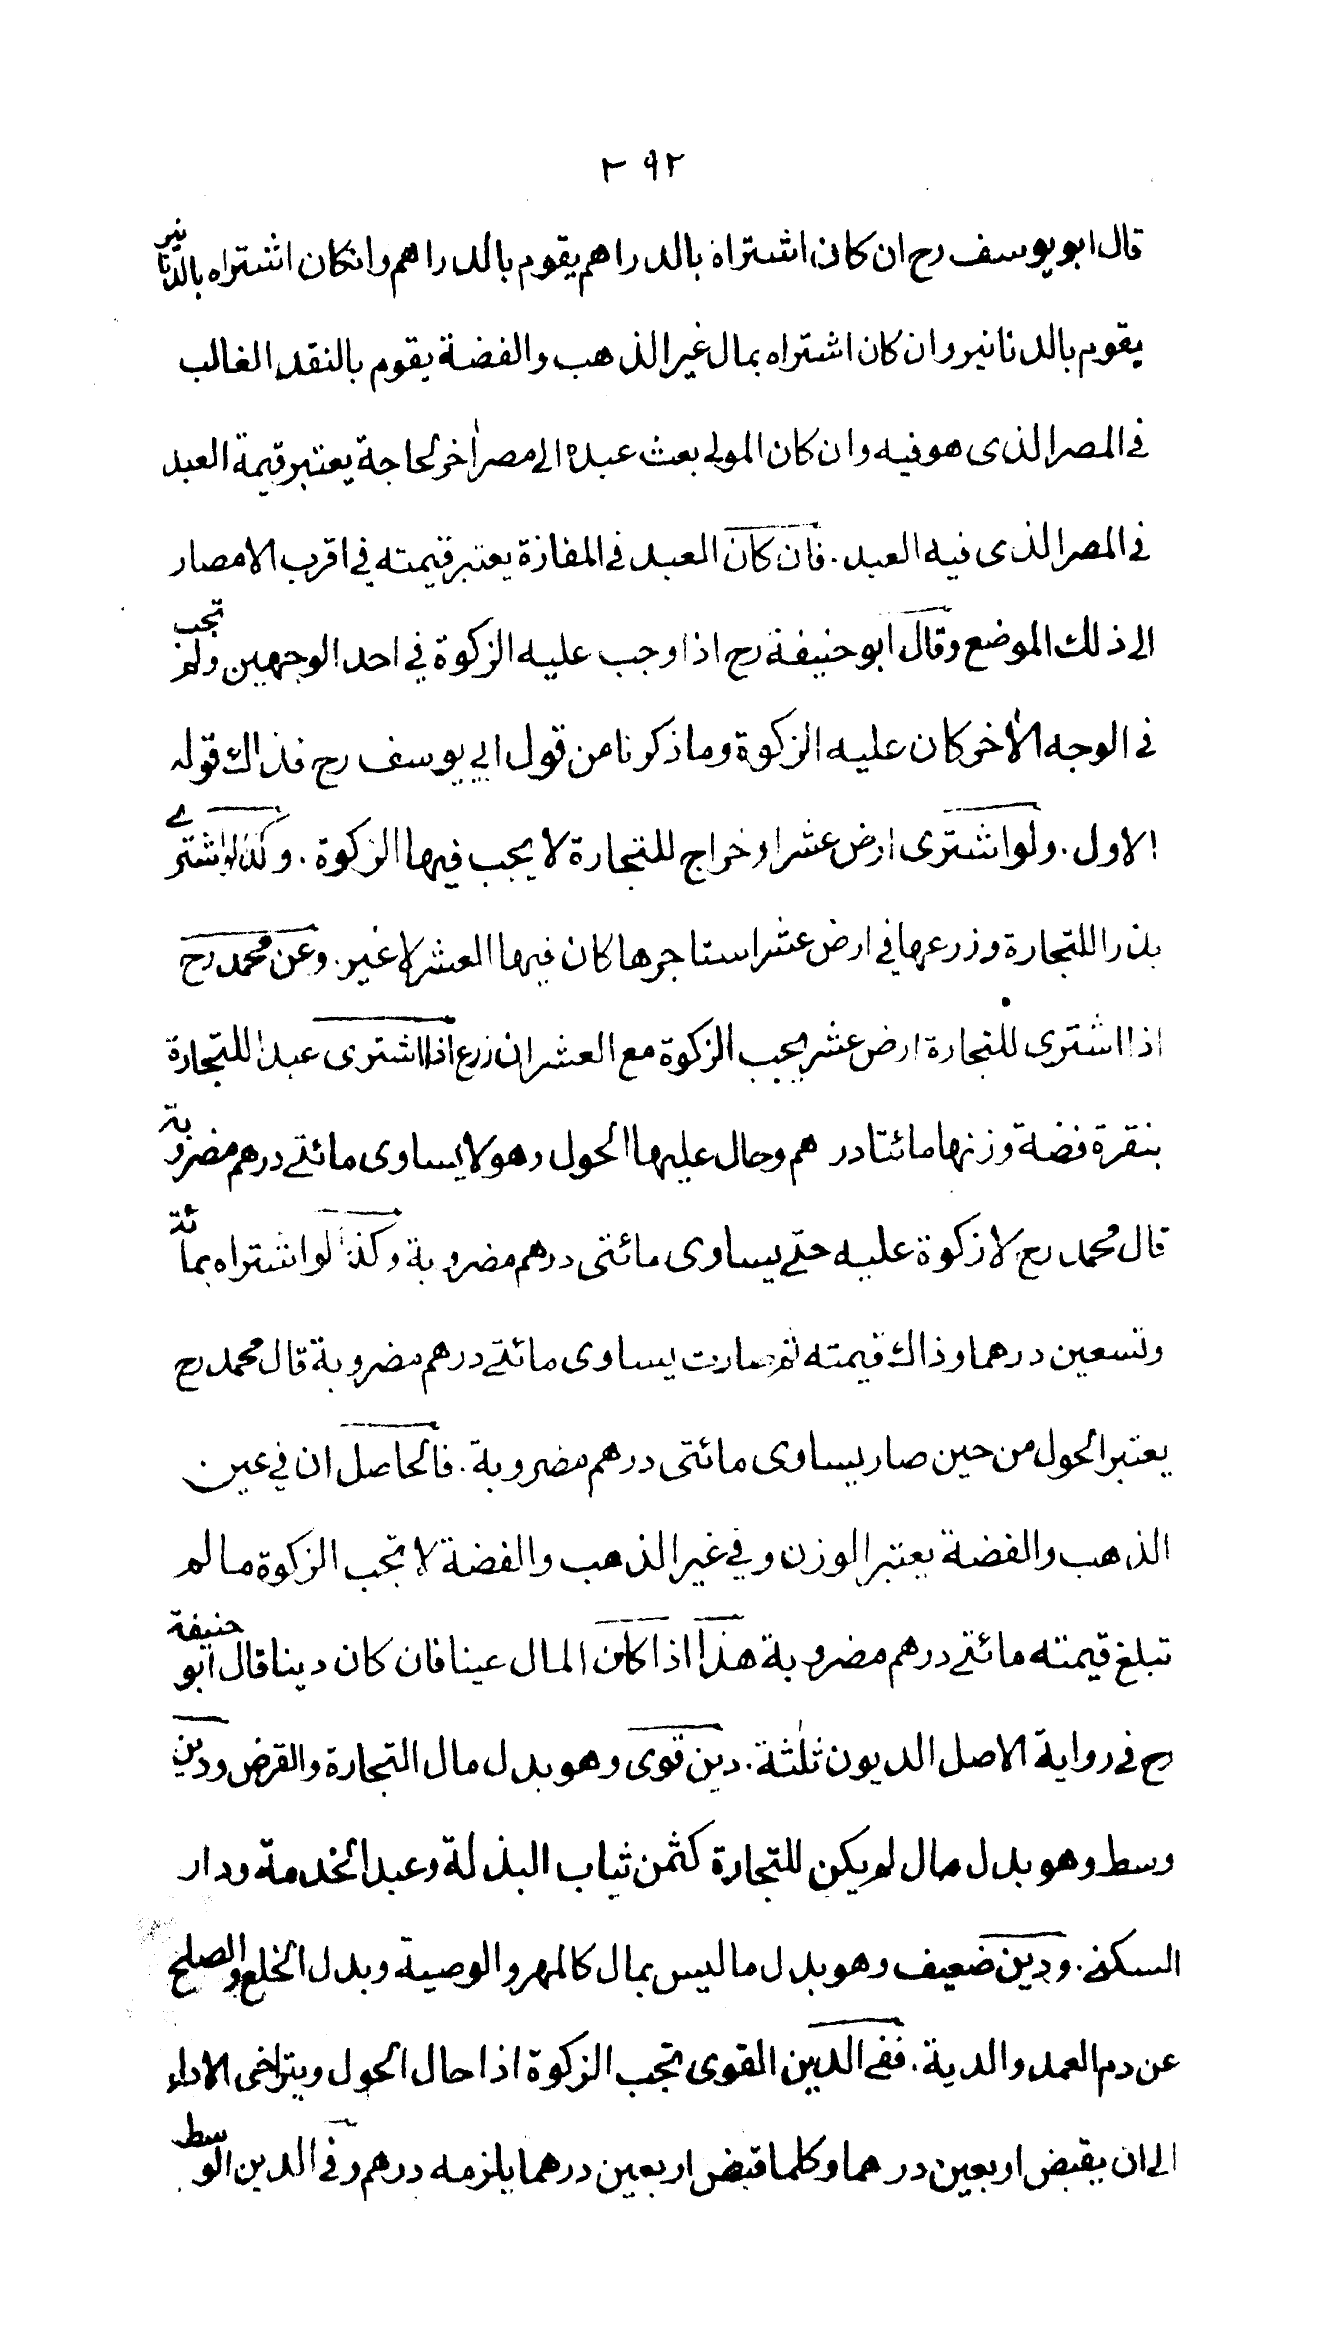 ٢٩٢
قال ابو يوسف رح ان كان اشتراه بالدراهم يقوم بالدراهم وانكان اشتراه بالدنانير
يقوم بالدنانير وان كان اشتراه بمال غير الذهب والفضة يقوم بالنقد الغالب
فى المصر الذى هو فيه وان كان المولى بعث عبده الى مصر اٰخر لحاجة يعتبر قيمة العبد
فى المصر الذى فيه العبد. فان كان العبد فى المفازة يعتبر قيمته فى اقرب الامصار
الى ذلك الموضع وقال ابو حنيفة رح اذا وجب عليه الزكوة في احد الوجهين ولم تجب
فى الوجه الاٰخر كان عليه الزكوة وما ذكرنا من قول ابي يوسف رح فذاك قوله
الاول. ولو اشترى ارض عشر او خراج للتجارة لا يجب فيها الزكوة. وكذا لو اشترے
بذرا للتجارة وزرعها في ارض عشر استاجرها كان فيها العشر لا غير. وعن محمد رح
اذا اشترى للتجارة ارض عشر يجب الزكوة مع العشر ان زرع اذا اشترى عبدا للتجارة
بنقرة فضة وزنها مائتا درهم وحال عليها الحول وهو لا يساوى مائتے درهم مضروبة
قال محمد رح لا زكوة عليه حتے يساوى مائتى درهم مضروبة وكذا لو اشتراه بمائة
وتسعين درهما وذاك قيمته ثم صارت يساوى مائتے درهم مضروبة قال محمد رح
يعتبر الحول من حين صار يساوى مائتى درهم مضروبة. فالحاصل ان في عين
الذهب والفضة يعتبر الوزن وفي غير الذهب والفضة لا تجب الزكوة ما لم
تبلغ قيمته مائتے درهم مضروبة هذا اذا كان المال عينا فان كان دينا قال ابو حنيفة
رح فى رواية الاصل الديون ثلٰثة. دين قوى وهو بدل مال التجارة والقرض ودين
وسط وهو بدل مال لم يكن للتجارة كثمن ثياب البذلة وعبد الخدمة ودار
السكنے. ودين ضعيف وهو بدل ما ليس بمال كالمهر والوصية وبدل الخلع والصلح
عن دم العمد والدية. ففى الدين القوى تجب الزكوة اذا حال الحول ويتراخى الاداء
الى ان يقبض اربعين درهما وكلما قبض اربعين درهما يلزمه درهم وفى الدين الوسط